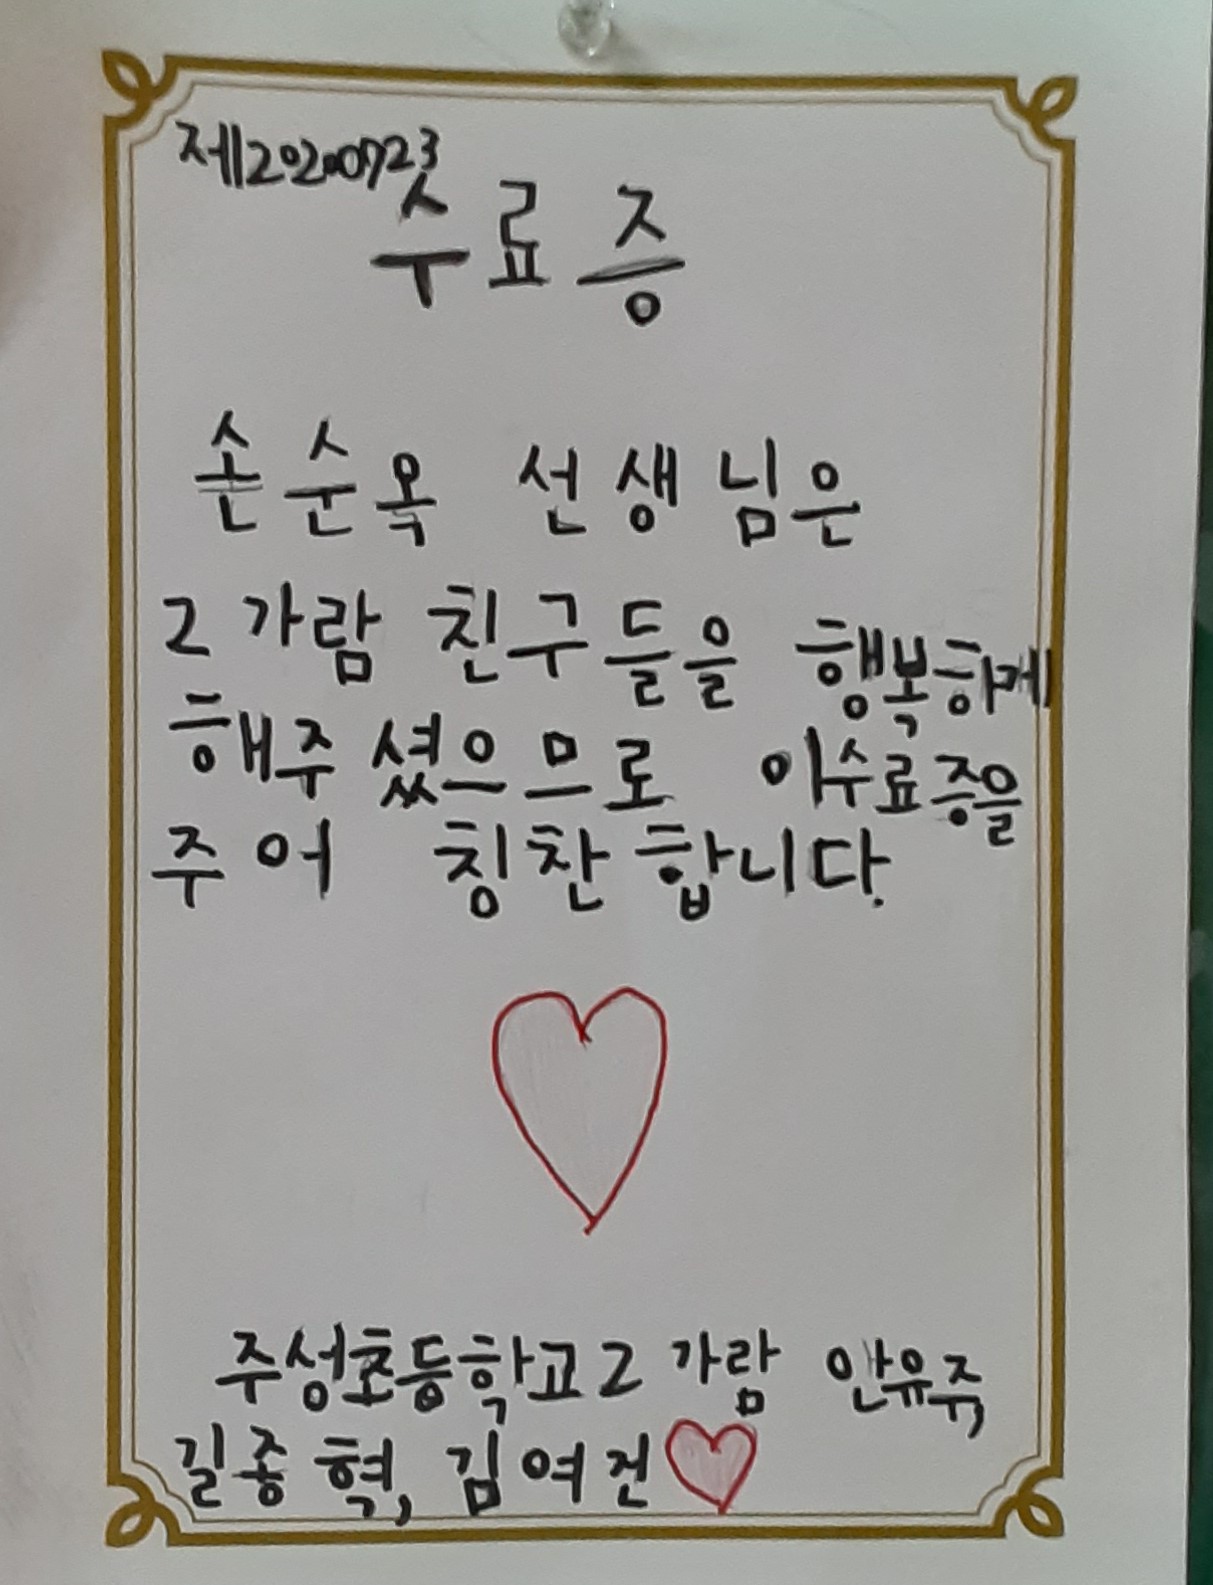 제20200723
수료증
손순옥 선생님은
2가람 친구들을 행복하게
해주셨으므로 이수료증을
주어 칭찬합니다.
주성초등학교2가람 안유주,
길종혁, 김여건